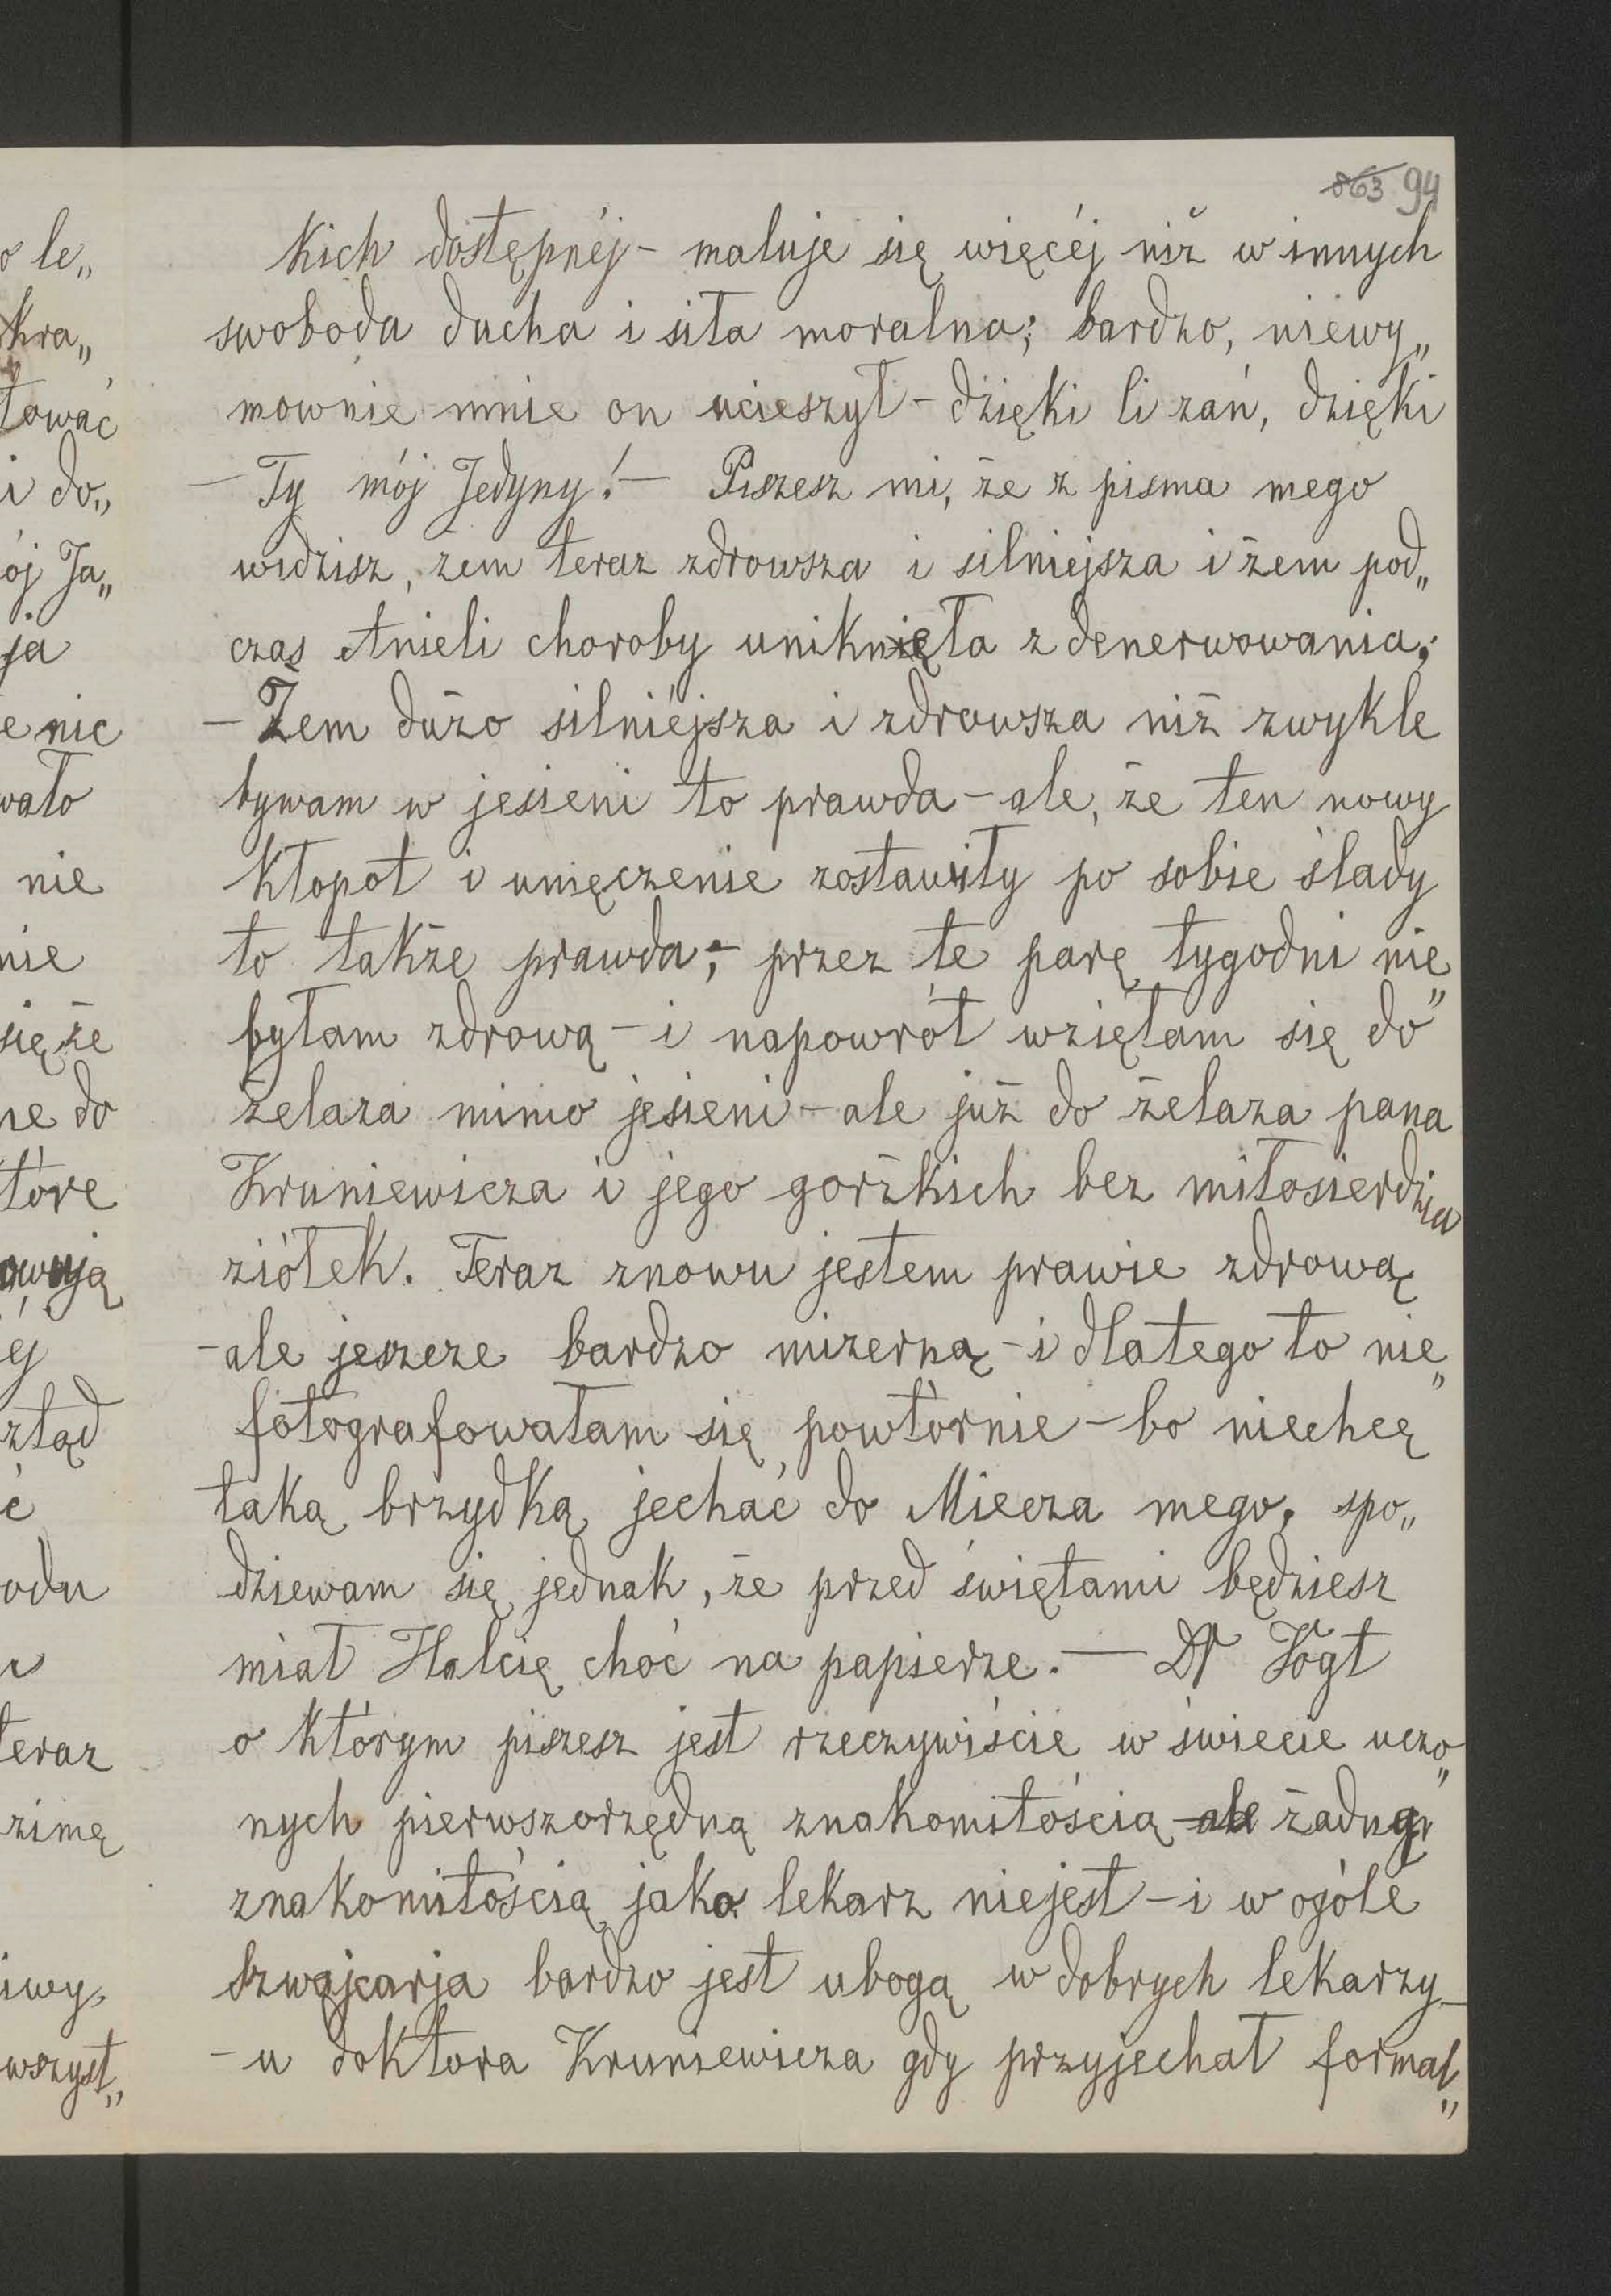 863 94
kich dostępnéj – maluje się więcéj niż w innych
swoboda ducha i siła moralna; bardzo, niewy„
mownie mnie on ucieszył – dzięki li zań, dzięki
– Ty mój Jedyny! – Piszesz mi, że z pisma mego
widzisz, żem teraz zdrowsza i silniejsza i żem pod„
czas Anieli choroby uniknęła zdenerwowania;
– Żem dużo silniéjsza i zdrowsza niż zwykle
bywam w jesieni to prawda – ale, że ten nowy
kłopot i umęczenie zostawiły po sobie ślady
to także prawda; – przez te parę tygodni nie„
byłam zdrową – i napowrót wzięłam się do
żelaza mimo jesieni – ale już do żelaza pana
Kruniewicza i jego gorżkich bez miłosierdzia
ziółek. Teraz znowu jestem prawie zdrową
– ale jeszcze bardzo mizerną – i dlatego to nie„
fotografowałam się powtórnie – bo niechcę
taką brzydką jechać do Miecza mego, spo„
dziewam się jednak, że przed świętami będziesz
miał Halcię choć na papierze. — Dr Vogt
o którym piszesz jest rzeczywiście w świecie uczo„
nych pierwszorzędną znakomitością – ale żadną
znakomitością jako lekarz niejest – i w ogóle
Szwajcarja bardzo jest ubogą w dobrych lekarzy –
– u doktora Kruniewicza gdy przyjechał formal„
o le„
kra„
łować
i do„
ój Ja„
ja
e nic
wało
nie
nie
się że
ne do
tóre
owują
éj
ztąd
ć
odu
teraz
zimę
iwy,
wszyst„